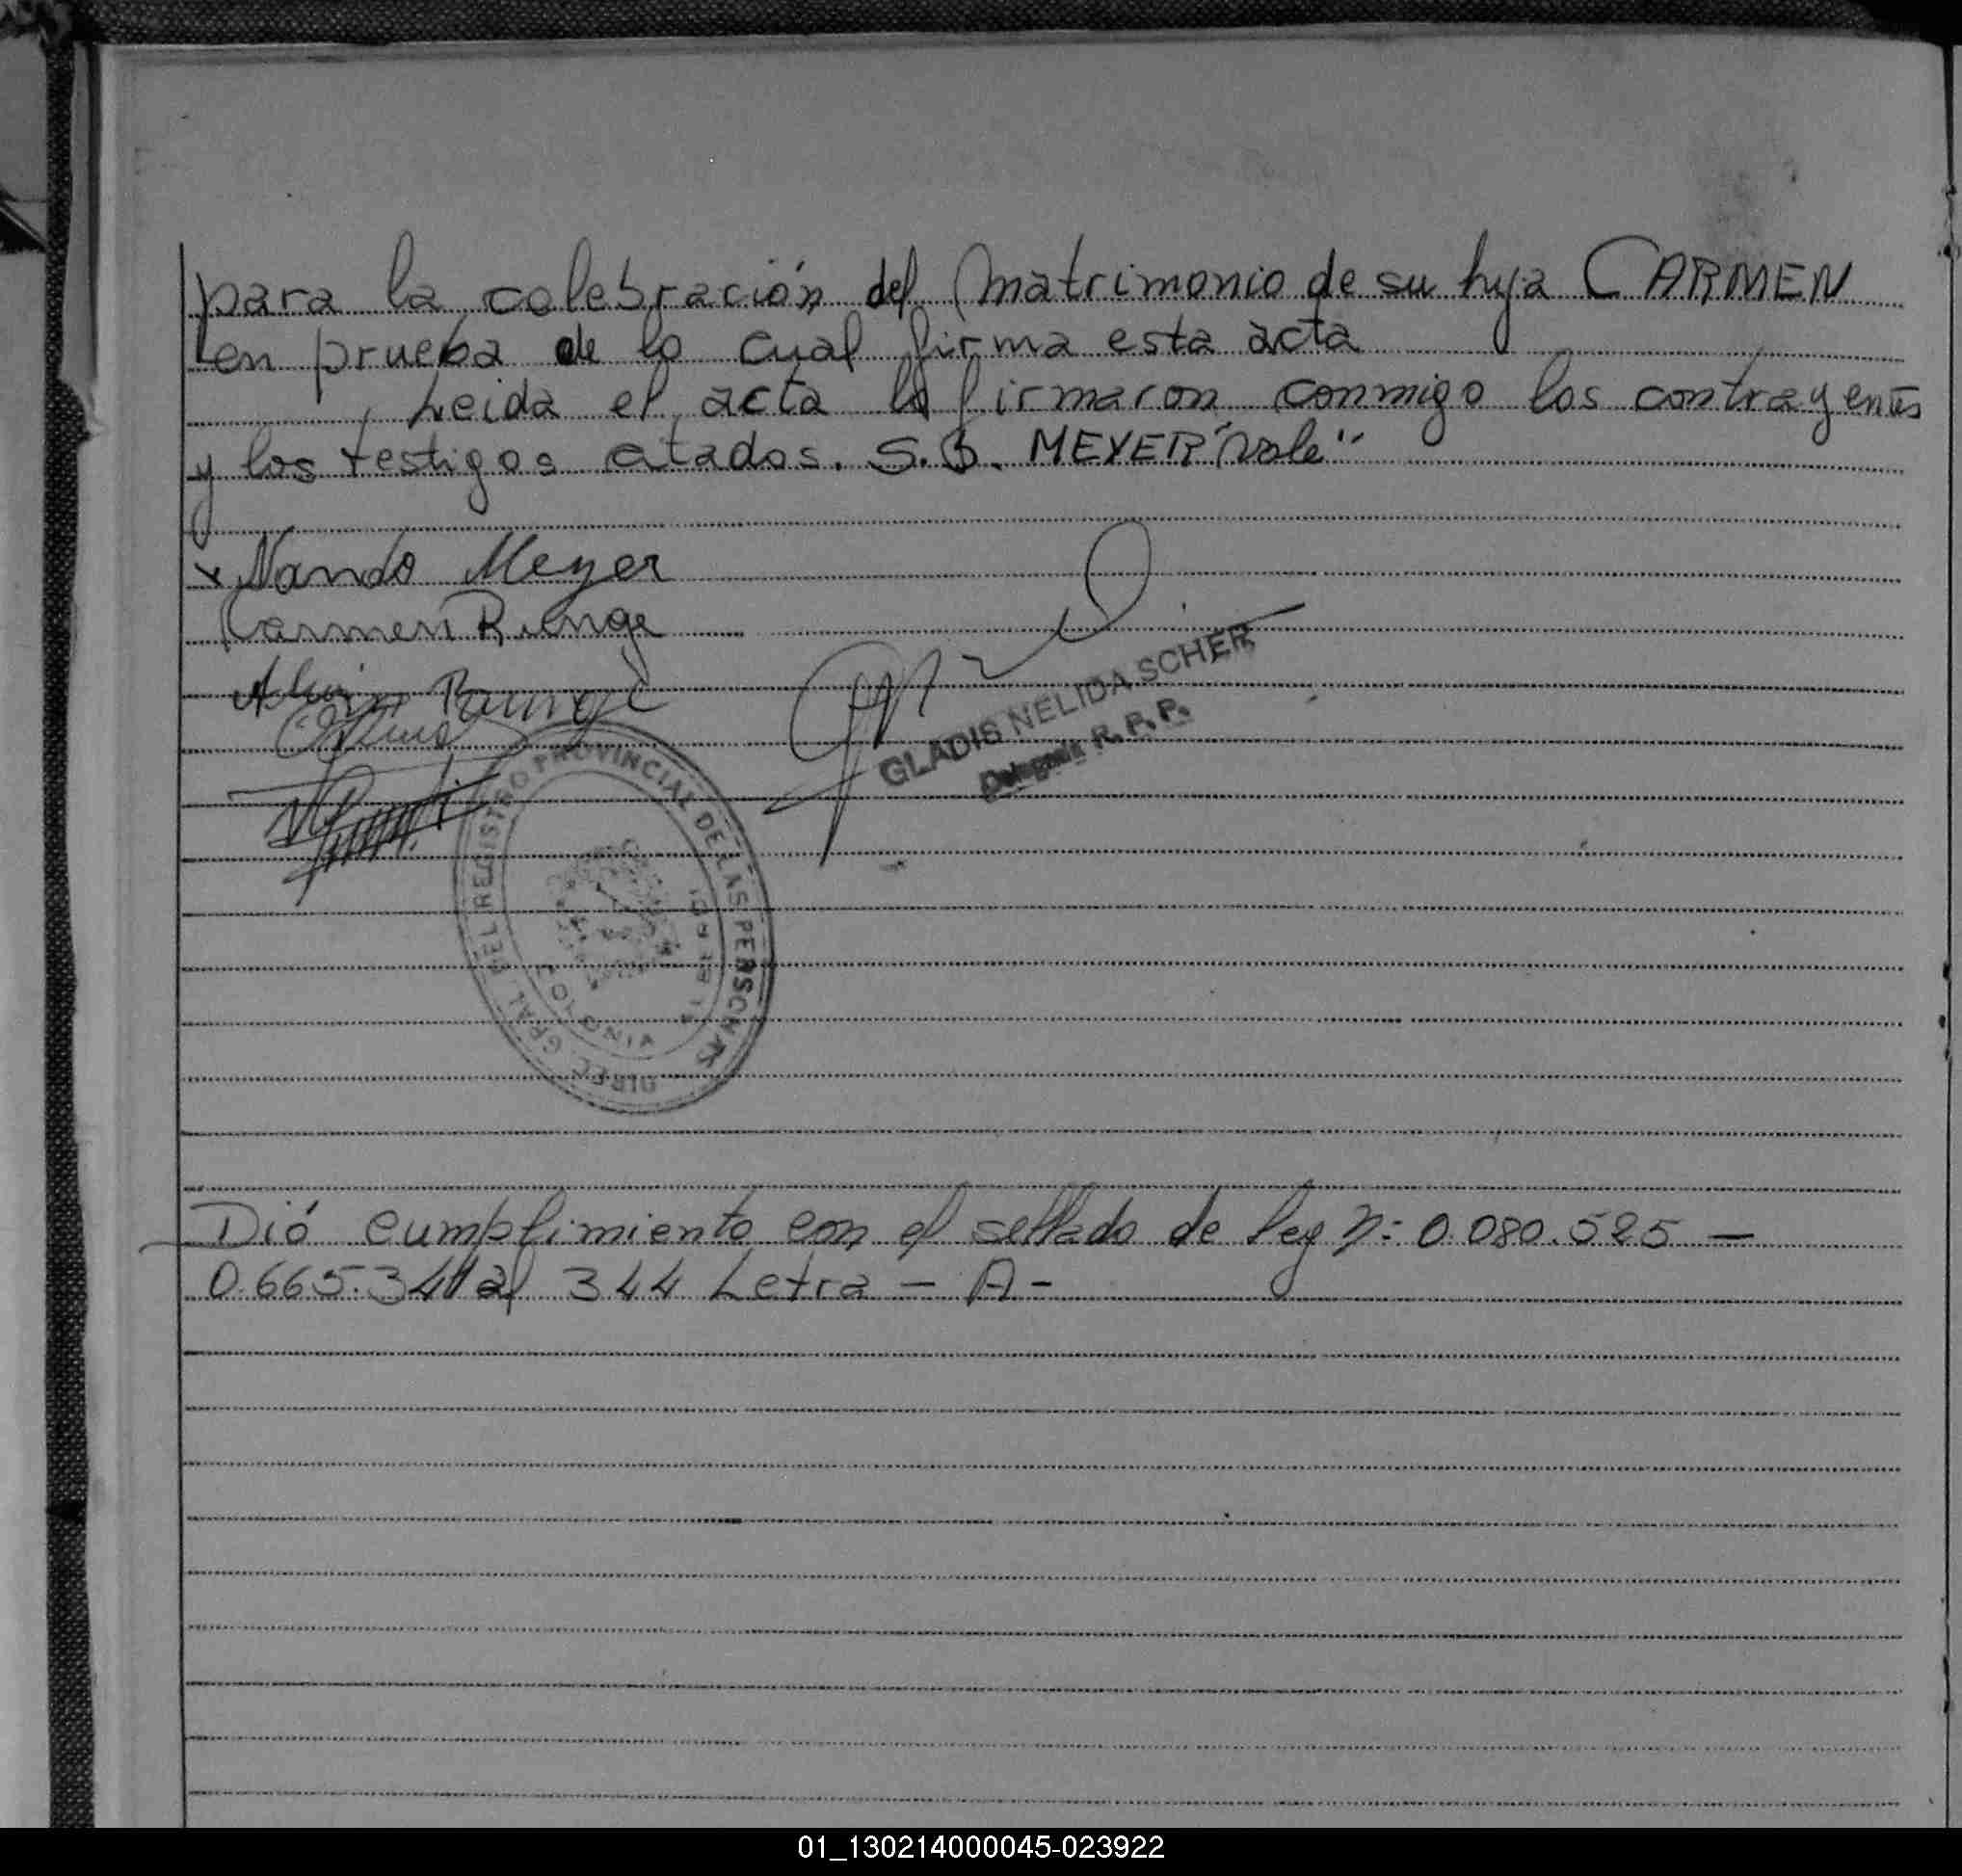 para la celebración del Matrimonio de su hija CARMEN
en prueba de lo cual firma esta acta
Leida el acta la firmaron conmigo los contrayentes
y los testigos citados. S.B. MEYER "Vale"
x Nando Meyer
Carmen Runge
Runge
GLADIS NELIDA SCHER
Delegada R. P. P.
DIREC. GRAL. DEL REGISTRO PROVINCIAL DE LAS PERSONAS
Dió cumplimiento con el sellado de ley n: 0.080.525 —
0.665.341 al 344 Letra - A -
01_130214000045-023922